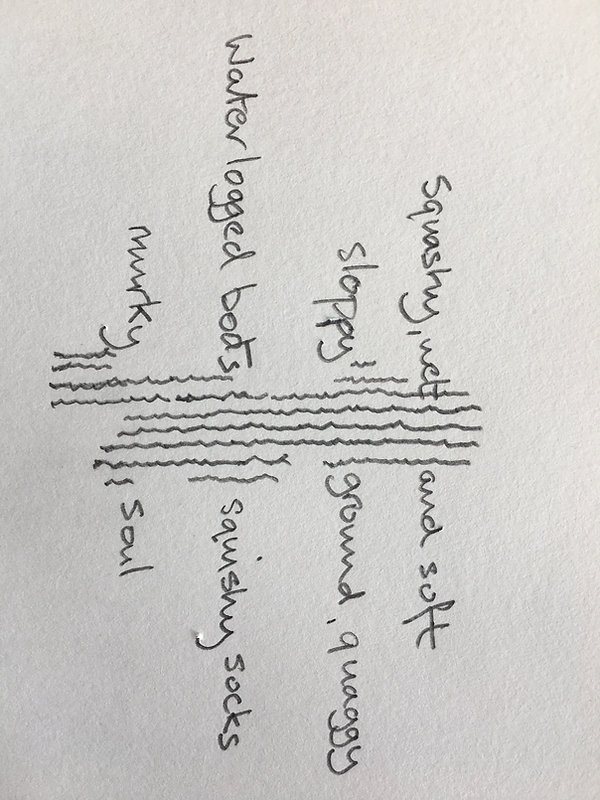 Squashy, wet and soft
sloppy ground, quaggy
Waterlogged boots squishy socks
murky soul